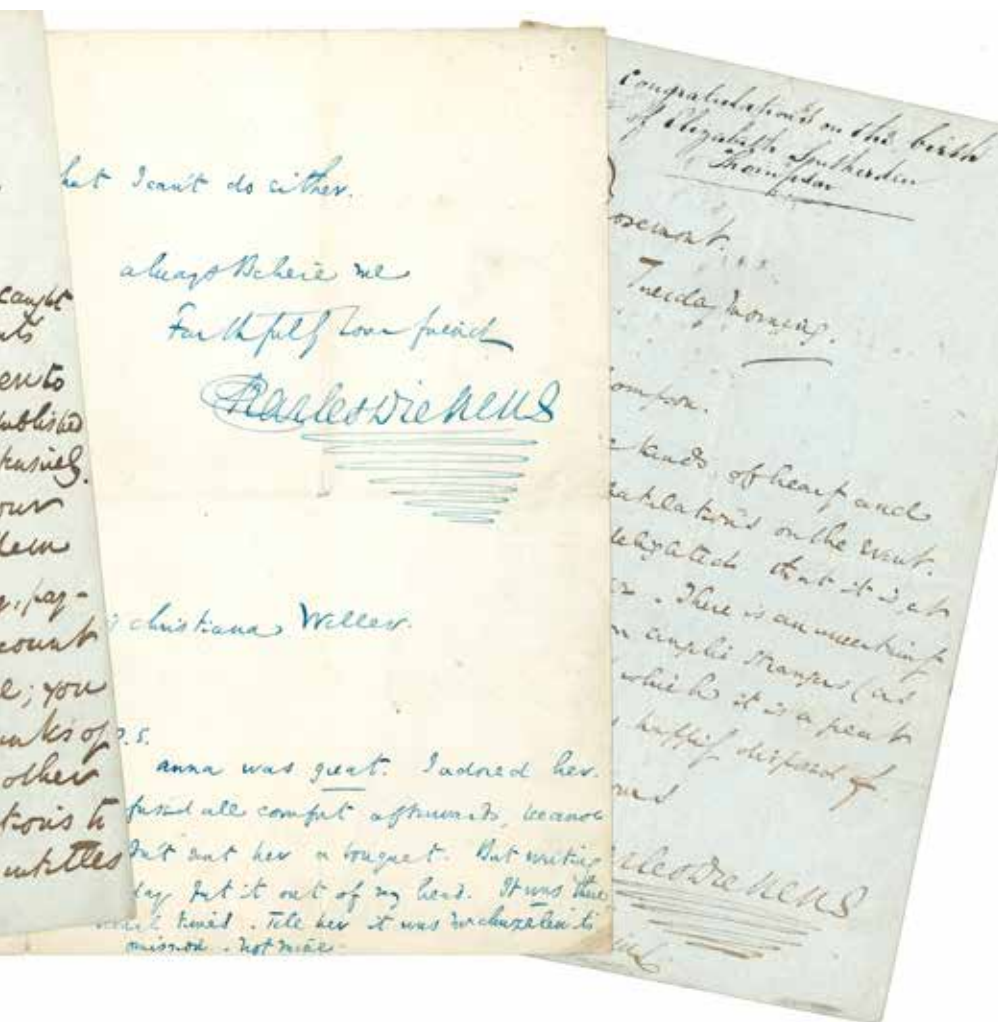 caught
en to
published
our
, pay-
count
e; you
anks of
other
tions to
entitles
hat I can't do either.
always Believe me
Faithfully Your friend
Charles Dickens
Christiana Weller.
P.S.
anna was great. I adored her.
fused all comfort afterwards, because
dn't sent her a bouquet. But writing
day put it out of my head. It was the
Tell her it was Mchuzzlewits
mission. not mine.
Congratulations on the birth
of Elizabeth Southerden
Thompson
osemont.
Tuesday Morning.
ompson.
of heart and
atulations on the event.
elighted that it is at
. There is an unmeaning
strangers (as
which it is a great
happily disposed of
ours
arles Dickens